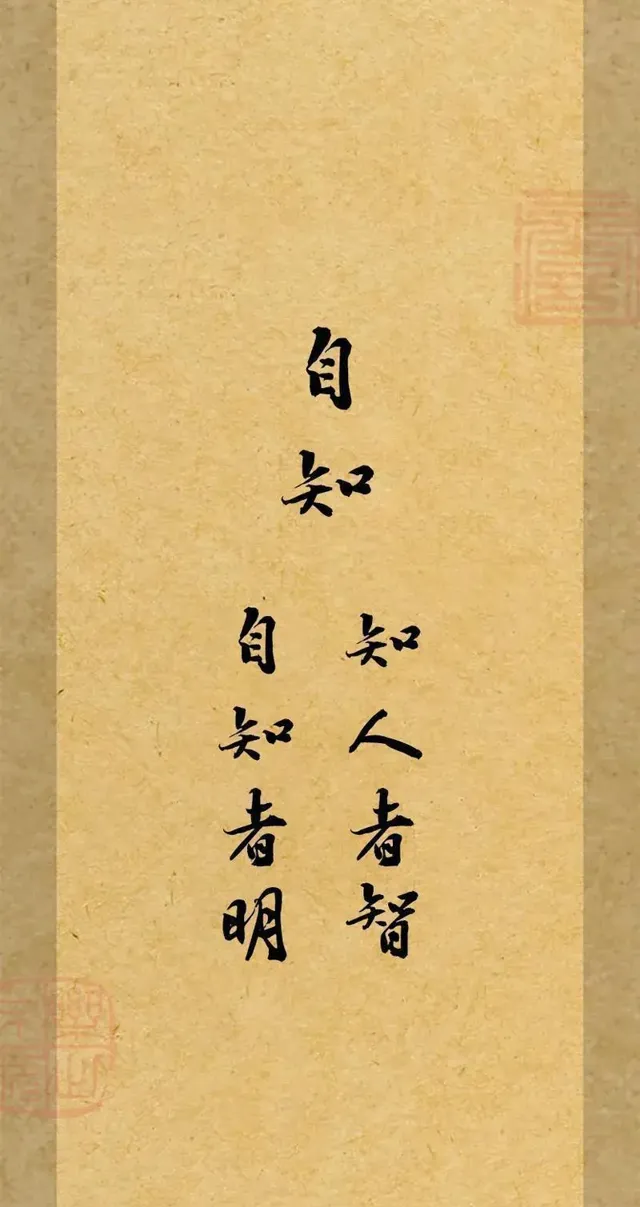 自知
知人者智
自知者明